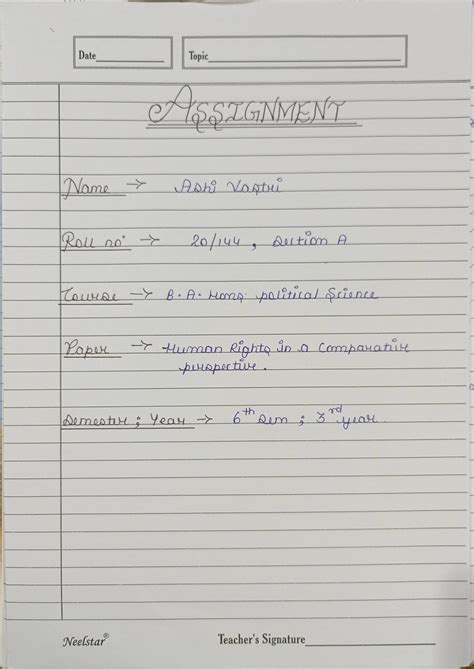 Date
Topic
ASSIGNMENT
Name → Ashi Vastri
Roll no → 20/144, Section A
Course → B.A. Hons political Science
Paper → Human Rights in a Comparative
perspective.
Semester ; Year → 6th Sem ; 3rd year
Neelstar®
Teacher's Signature